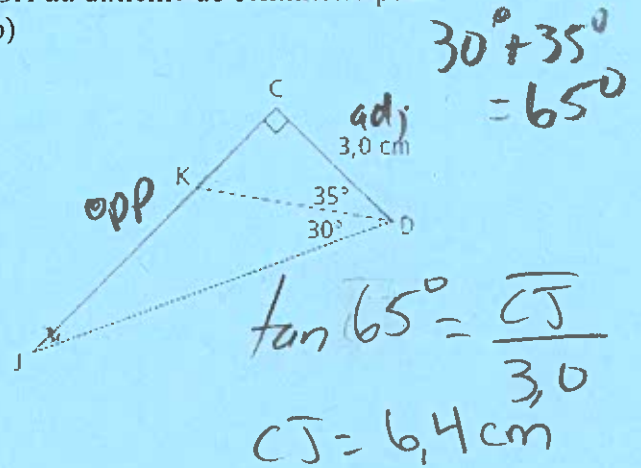 b)
30°+35°
= 65°
C
adj
3,0 cm
K
opp
35°
30°
D
x
J
tan 65° = CJ
3,0
CJ = 6,4 cm